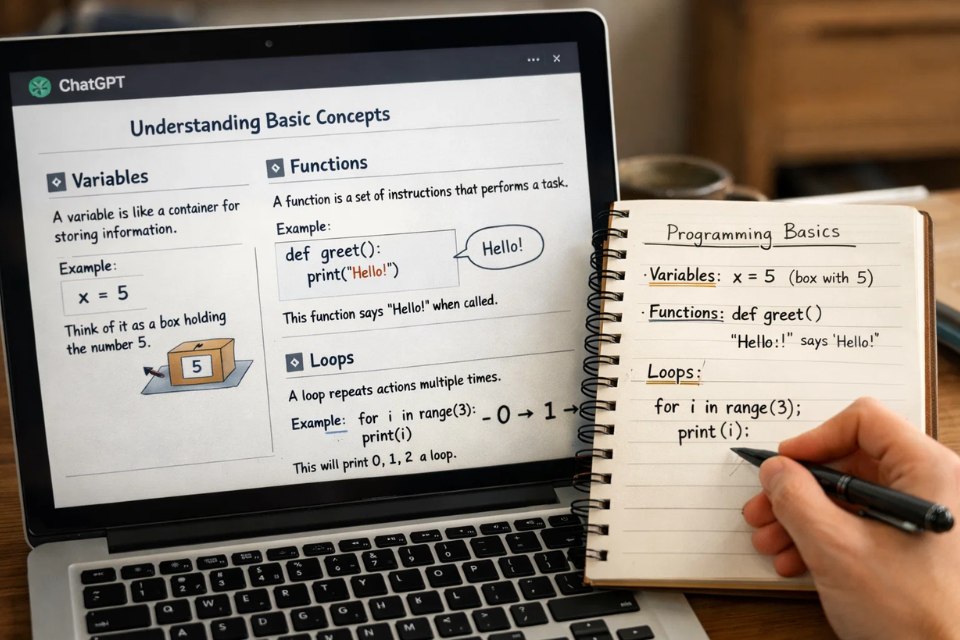 ChatGPT
Understanding Basic Concepts
Variables
A variable is like a container for
storing information.
Example:
x = 5
Think of it as a box holding
the number 5.
5
Functions
A function is a set of instructions that performs a task.
Example:
def greet():
print("Hello!")
Hello!
This function says "Hello!" when called.
Loops
A loop repeats actions multiple times.
Example: for i in range(3): - 0 → 1 →
print(i)
This will print 0, 1, 2 a loop.
Programming Basics
· Variables: x = 5 (box with 5)
· Functions: def greet()
"Hello:!" says 'Hello!"
Loops:
for i in range(3);
print (i):